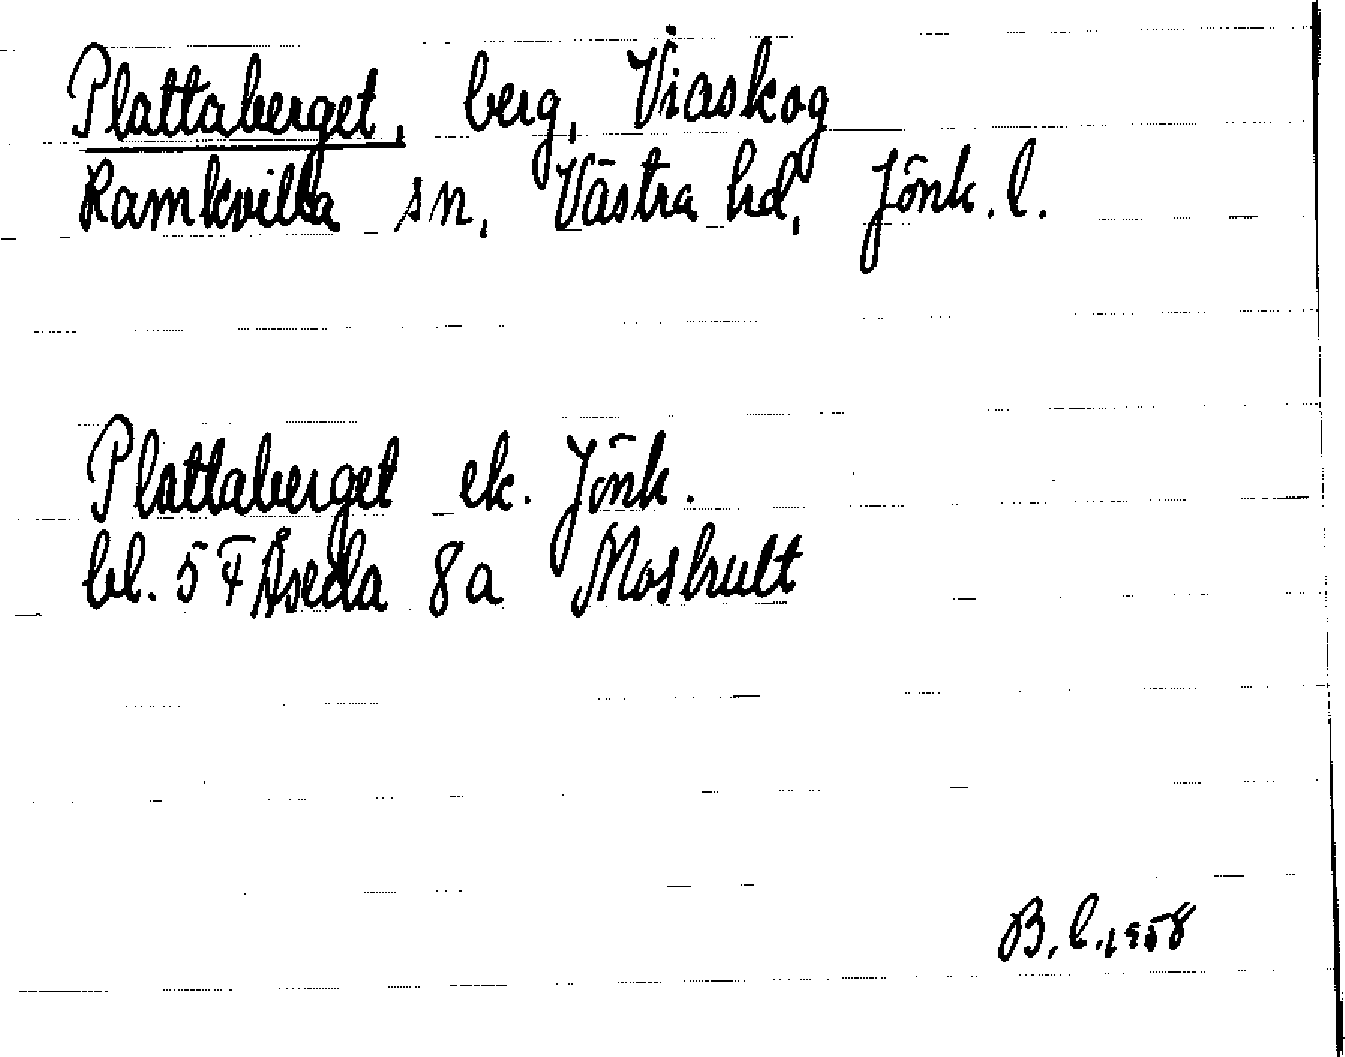 Plattaberget, berg, Viaskog
Ramkvilla sn, Västra hd, Jönk. l.
Plattaberget ek. Jönk.
bl. 5 F Åseda 8a Moshult
B. l. 1958